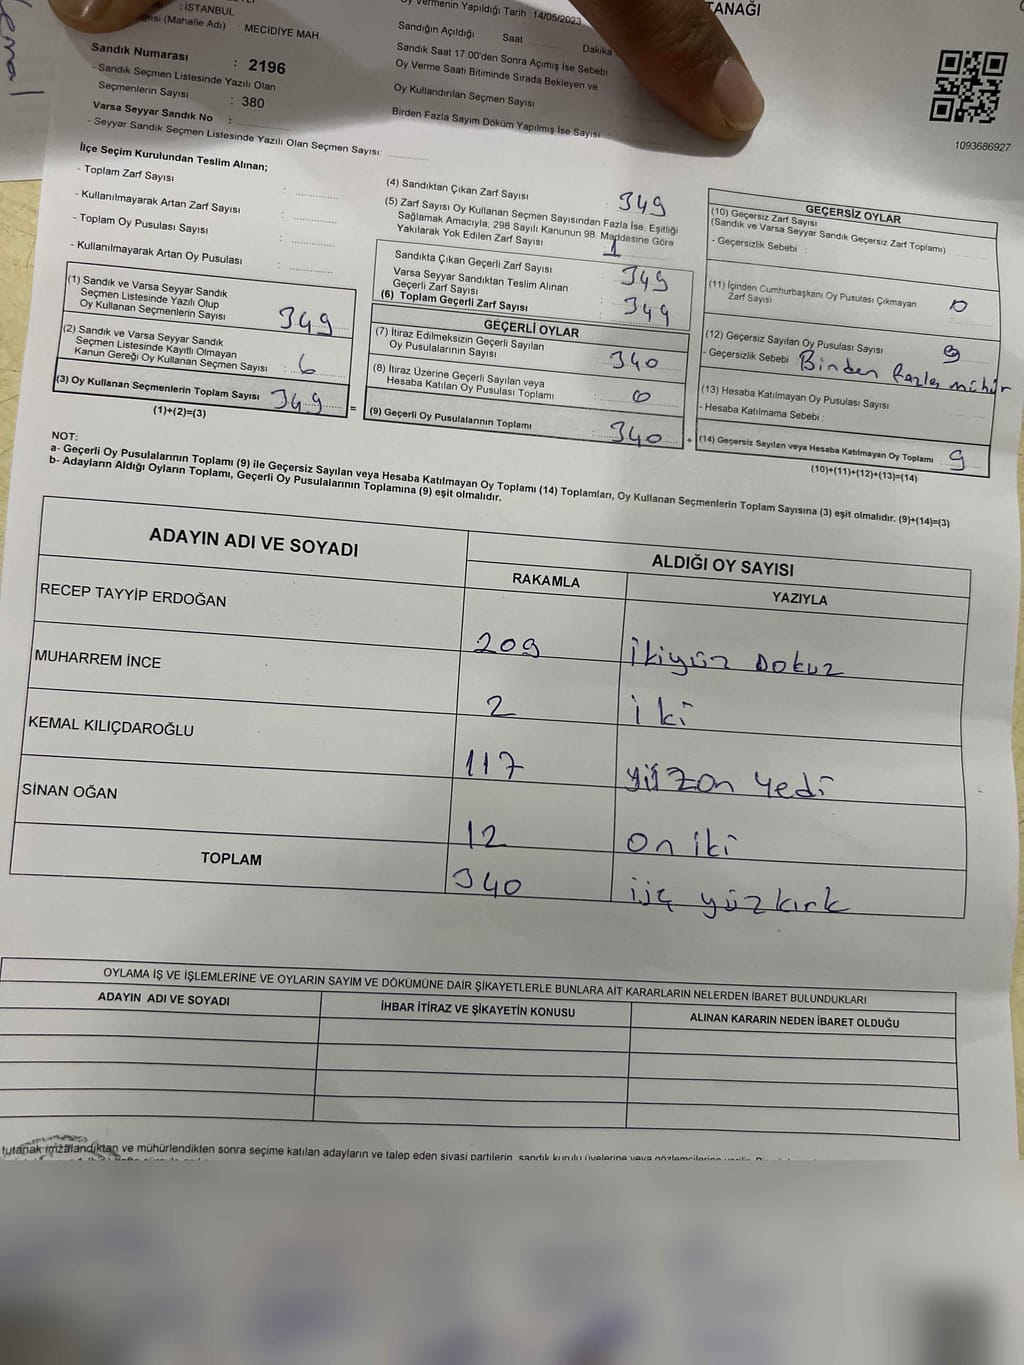 : İSTANBUL
(Mahalle Adı) MECİDİYE MAH
Sandık Numarası : 2196
- Sandık Seçmen Listesinde Yazılı Olan
Seçmenlerin Sayısı : 380
Varsa Seyyar Sandık No :
- Seyyar Sandık Seçmen Listesinde Yazılı Olan Seçmen Sayısı:
Vermenin Yapıldığı Tarih : 14/05/2023
Sandığın Açıldığı Saat Dakika
Sandık Saat 17:00'den Sonra Açımış İse Sebebi
Oy Verme Saati Bitiminde Sırada Bekleyen ve
Oy Kullandırılan Seçmen Sayısı
Birden Fazla Sayım Döküm Yapılmış İse Sayısı :
TANAĞI
1093686927
İlçe Seçim Kurulundan Teslim Alınan;
- Toplam Zarf Sayısı :
- Kullanılmayarak Artan Zarf Sayısı :
- Toplam Oy Pusulası Sayısı :
- Kullanılmayarak Artan Oy Pusulası :
(1) Sandık ve Varsa Seyyar Sandık
Seçmen Listesinde Yazılı Olup
Oy Kullanan Seçmenlerin Sayısı : 349
(2) Sandık ve Varsa Seyyar Sandık
Seçmen Listesinde Kayıtlı Olmayan
Kanun Gereği Oy Kullanan Seçmen Sayısı : 6
(3) Oy Kullanan Seçmenlerin Toplam Sayısı : 349 =
(1)+(2)=(3)
(4) Sandıktan Çıkan Zarf Sayısı : 349
(5) Zarf Sayısı Oy Kullanan Seçmen Sayısından Fazla İse, Eşitliği
Sağlamak Amacıyla, 298 Sayılı Kanunun 98. Maddesine Göre
Yakılarak Yok Edilen Zarf Sayısı : 1
Sandıkta Çıkan Geçerli Zarf Sayısı : 349
Varsa Seyyar Sandıktan Teslim Alınan
Geçerli Zarf Sayısı :
(6) Toplam Geçerli Zarf Sayısı : 349
GEÇERLİ OYLAR
(7) İtiraz Edilmeksizin Geçerli Sayılan
Oy Pusulalarının Sayısı : 340
(8) İtiraz Üzerine Geçerli Sayılan veya
Hesaba Katılan Oy Pusulası Toplamı : 0
(9) Geçerli Oy Pusulalarının Toplamı : 340 +
GEÇERSİZ OYLAR
(10) Geçersiz Zarf Sayısı
(Sandık ve Varsa Seyyar Sandık Geçersiz Zarf Toplamı)
- Geçersizlik Sebebi :
(11) İçinden Cumhurbaşkanı Oy Pusulası Çıkmayan
Zarf Sayısı : 0
(12) Geçersiz Sayılan Oy Pusulası Sayısı : 9
- Geçersizlik Sebebi : Binden fazla mühür
(13) Hesaba Katılmayan Oy Pusulası Sayısı
- Hesaba Katılmama Sebebi :
(14) Geçersiz Sayılan veya Hesaba Katılmayan Oy Toplamı : 9
(10)+(11)+(12)+(13)=(14)
NOT:
a- Geçerli Oy Pusulalarının Toplamı (9) ile Geçersiz Sayılan veya Hesaba Katılmayan Oy Toplamı (14) Toplamları, Oy Kullanan Seçmenlerin Toplam Sayısına (3) eşit olmalıdır. (9)+(14)=(3)
b- Adayların Aldığı Oyların Toplamı, Geçerli Oy Pusulalarının Toplamına (9) eşit olmalıdır.
ADAYIN ADI VE SOYADI
ALDIĞI OY SAYISI
RAKAMLA YAZIYLA
RECEP TAYYİP ERDOĞAN 209 İkiyüz Dokuz
MUHARREM İNCE 2 iki
KEMAL KILIÇDAROĞLU 117 yüzon yedi
SİNAN OĞAN 12 on iki
TOPLAM 340 üç yüzkırk
OYLAMA İŞ VE İŞLEMLERİNE VE OYLARIN SAYIM VE DÖKÜMÜNE DAİR ŞİKAYETLERLE BUNLARA AİT KARARLARIN NELERDEN İBARET BULUNDUKLARI
ADAYIN ADI VE SOYADI İHBAR İTİRAZ VE ŞİKAYETİN KONUSU ALINAN KARARIN NEDEN İBARET OLDUĞU
tutanak imzalandıktan ve mühürlendikten sonra seçime katılan adayların ve talep eden siyasi partilerin, sandık kurulu üyelerine veya gözlemcilerine